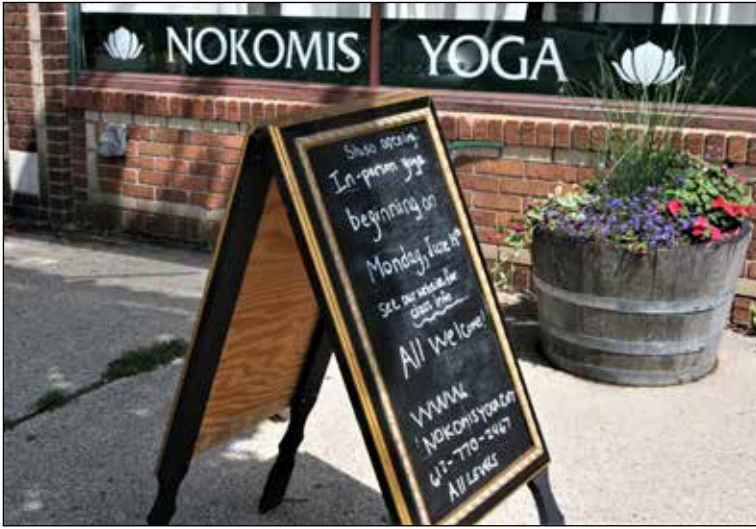 NOKOMIS YOGA
Studio opening!
In-person yoga
beginning on
Monday, June
see our website for
class info
All Welcome!
WWW.
NOKOMISYOGA.COM
612-770-2467
All LEVELS